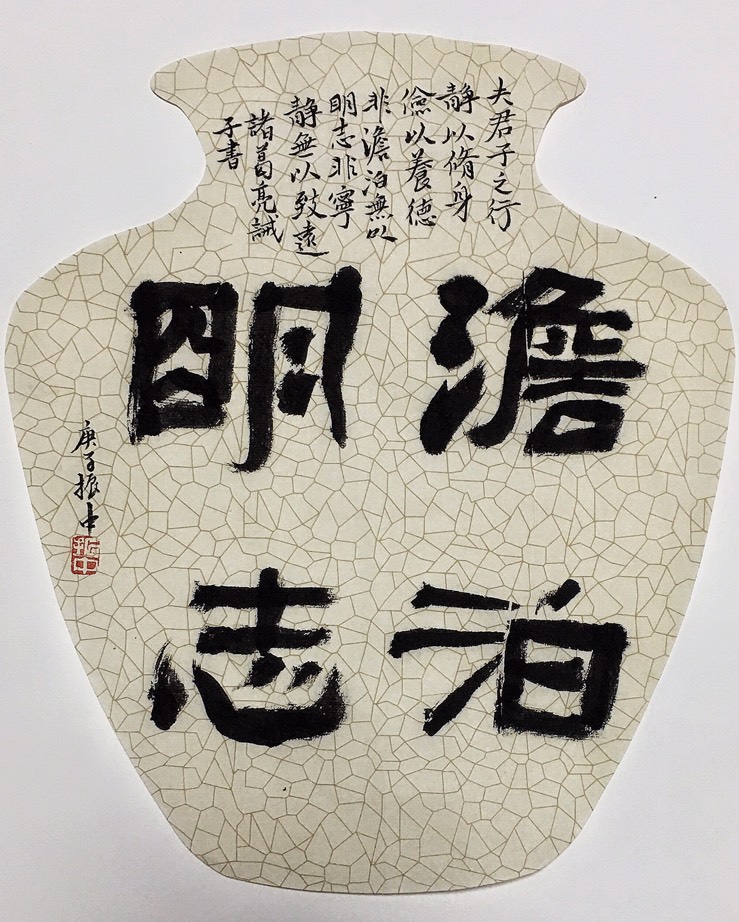 夫君子之行
静以脩身
儉以養德
非澹泊無以
明志非寧
静無以致遠
諸葛亮誡
子書
澹泊
明志
庚子振中
振中